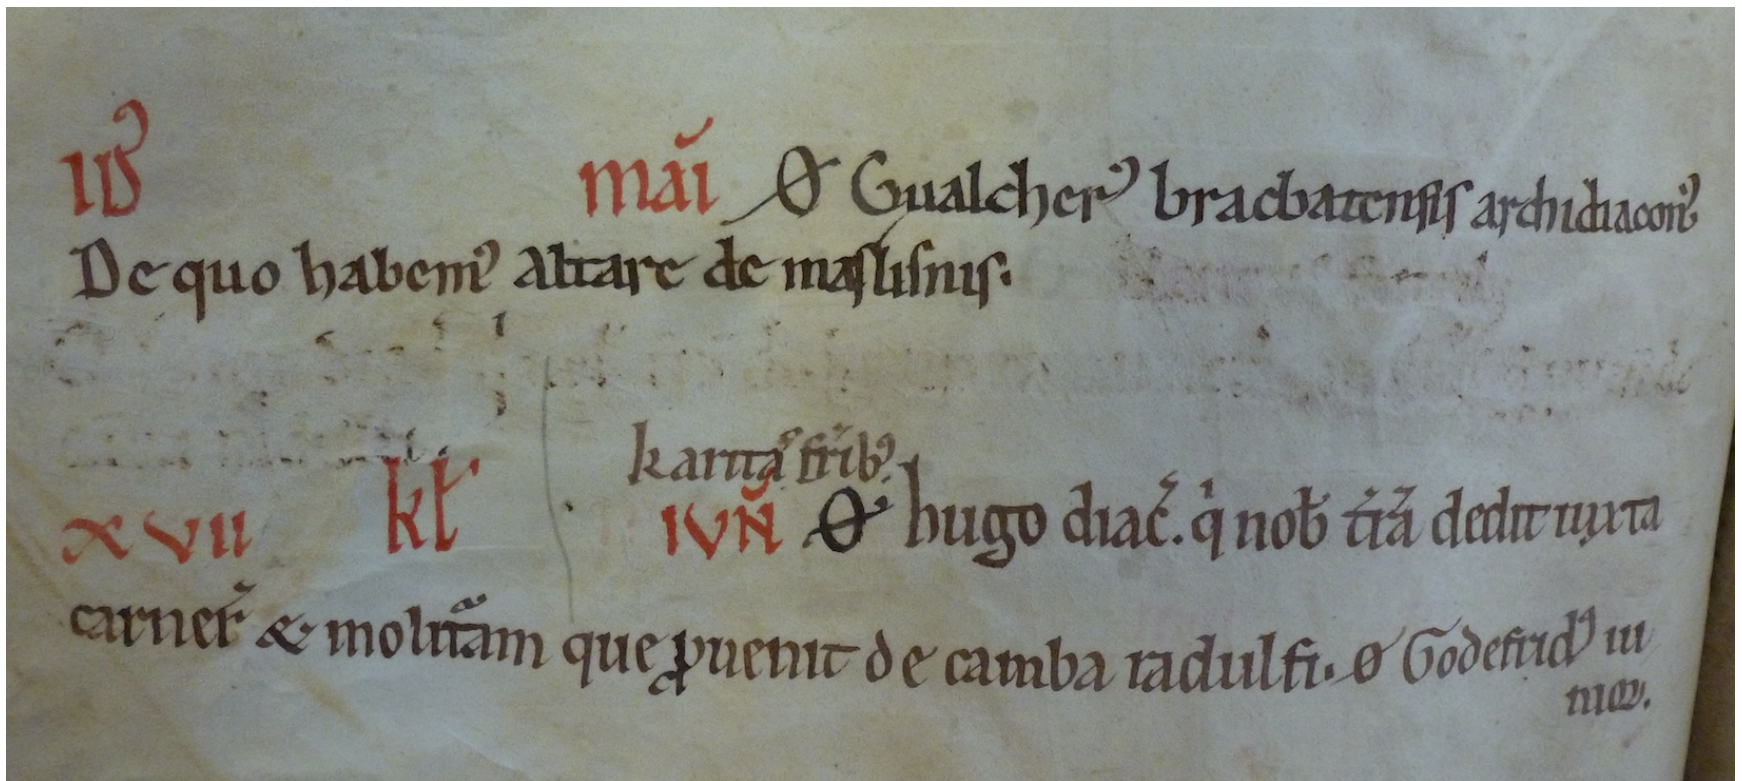 idꝰ maı̆ Ꝋ Gualcherꝰ bracbatensis archidiaconꝰ
De quo habemꝰ altare de maslisnis.
karitaͦ fr̄ibꝰ
xvii kł iun̄ Ꝋ hugo diac̄. qͥ nob̄ t̄rā dedit iuxta
carner̄ & molitᷓam que ꝓuenit de camba radulfi. Ꝋ Godefridꝰ iu
nioꝝ.